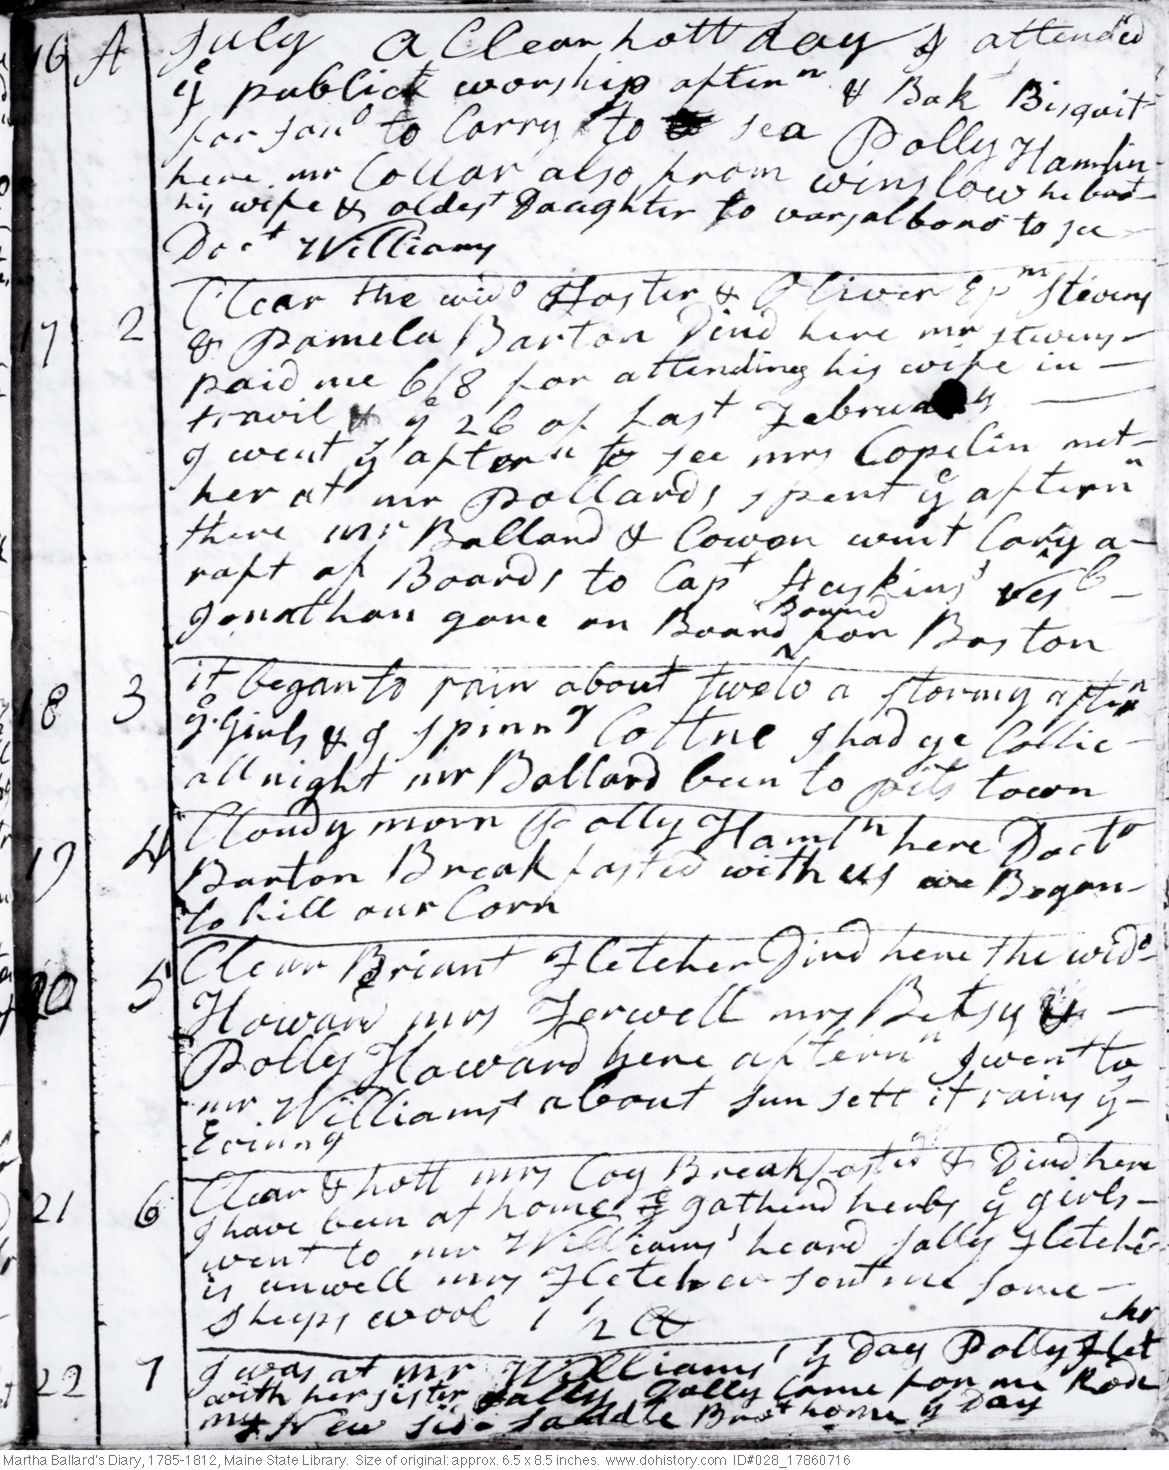 16 A July a Clear hott day I attended
ye publick worship aftern & Bak Bisquit
for Jona to Carry to sea Polly Hamlin
here. mr Collar also from winslow he brot
his wife & oldest Daughter to varsalboro to see
Doct Williams
17 2 Clear the wido Foster & Oliver Epm Stevens
& Pamela Barton Dind here mr stevens
paid me 6/8 for attending his wife in
travil ye 26 of last February
I went ye aftern to see mrs Copelin met
her at mr Pollards, spent ye aftern
there mr Ballard & Cowon went Cary a
raft of Boards to Capt Haskins' Vesl
Jonathan gone on Board Bound for Boston
18 3 it began to rain about twelv a stormy aftern
ye Girls & I spinng Cottne I had ye Collic
all night mr Ballard been to pitstown
19 4 Cloudy morn Polly Hamln here Docto
Barton Breakfasted with us we Began
to hill our Corn
20 5 Clear Briant Fletcher Dind here the wido
Howard mrs Ferwell mrs Betsy &
Polly Howard here aftern I went to
mr Williams' about sun sett it rains ye
Evinng
21 6 Clear & hott mrs Coy Breakfasted & Dind here
I have been at home gatherd herbs ye girls
went to mr Williams' heard Sally Fletcher
is unwell mrs Fletcher sent me some
sheeps wool 1 1/2 lb
22 7 I was at mr Williams' ye Day Polly Fletchr
with her sister Sally Dolly Came for me Rode
my New side saddle Brot home ye Day
Martha Ballard's Diary, 1785-1812, Maine State Library. Size of original: approx. 6.5 x 8.5 inches. www.dohistory.com ID#028_17860716